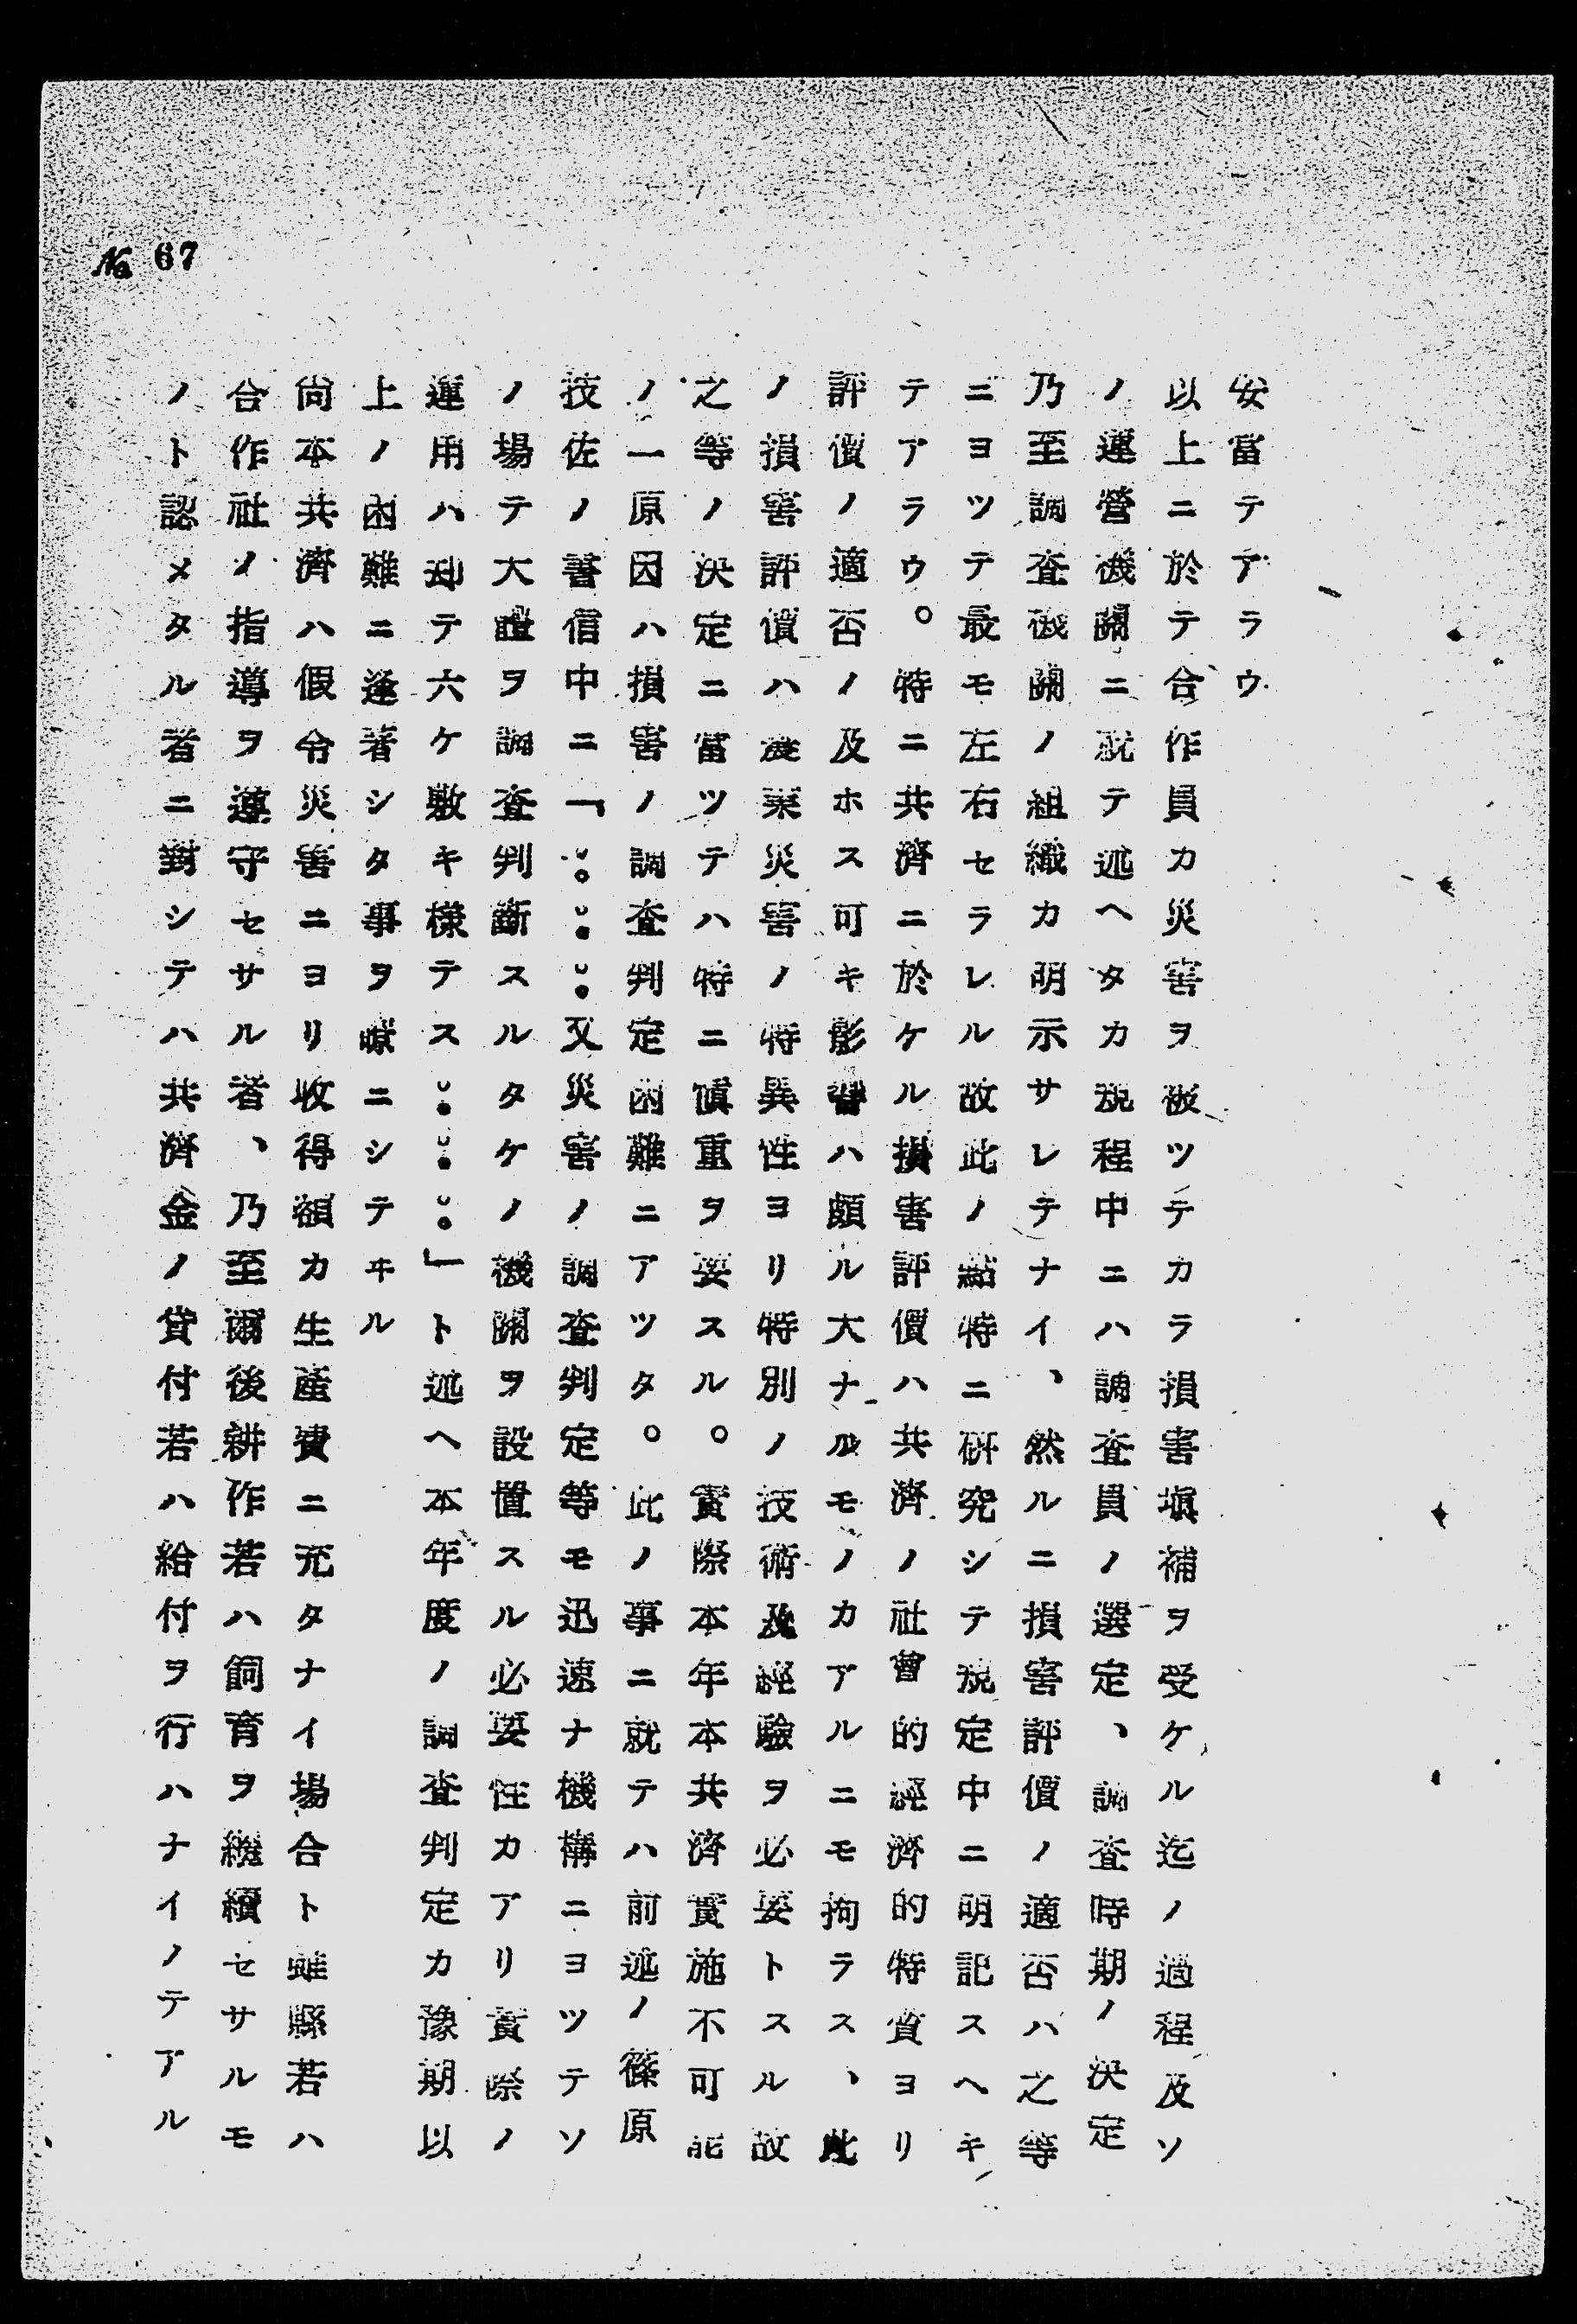 No 67
安當テアラウ
以上ニ於テ合作員カ災害ヲ被ツテカラ損害塡補ヲ受ケル迄ノ過程及ソ
ノ運營機關ニ就テ述ヘタカ規程中ニハ調査員ノ選定、調査時期ノ決定
乃至調査機關ノ組織カ明示サレテナイ、然ルニ損害評價ノ適否ハ之等
ニヨツテ最モ左右セラレル故此ノ點特ニ硏究シテ規定中ニ明記スヘキ
テアラウ。特ニ共濟ニ於ケル損害評價ハ共濟ノ社會的經濟的特質ヨリ
評價ノ適否ノ及ホス可キ影響ハ頗ル大ナルモノカアルニモ拘ラス、此
ノ損害評價ハ農業災害ノ特異性ヨリ特別ノ技術及經驗ヲ必要トスル故
之等ノ決定ニ當ツテハ特ニ愼重ヲ要スル。實際本年本共濟實施不可能
ノ一原因ハ損害ノ調査判定困難ニアツタ。此ノ事ニ就テハ前述ノ篠原
技佐ノ書信中ニ「……又災害ノ調査判定等モ迅速ナ機構ニヨツテソ
ノ場テ大體ヲ調査判斷スルタケノ機關ヲ設置スル必要性カアリ實際ノ
運用ハ却テ六ケ敷キ樣テス……」ト述ヘ本年度ノ調査判定カ豫期以
上ノ困難ニ逢著シタ事ヲ嘆ニシテヰル
尙本共濟ハ假令災害ニヨリ收得額カ生產費ニ充タナイ場合ト雖縣若ハ
合作社ノ指導ヲ遵守セサル者、乃至爾後耕作若ハ飼育ヲ繼續セサルモ
ノト認メタル者ニ對シテハ共濟金ノ貸付若ハ給付ヲ行ハナイノテアル